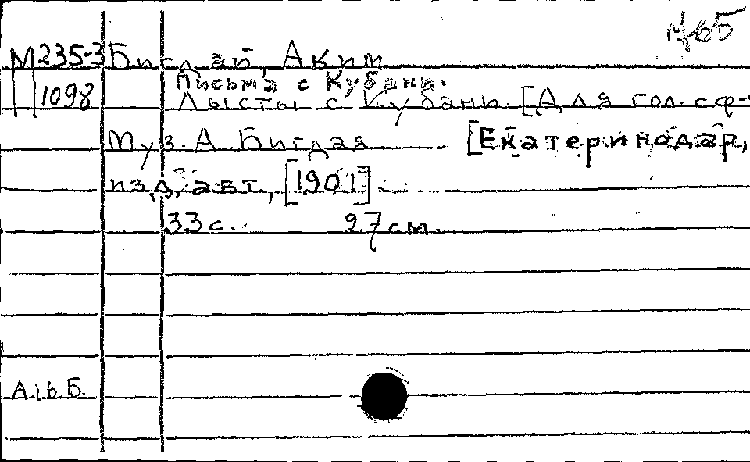 М 235-3 Бигдай, Аким
1098 Письма с Кубани.
Лысты с Кубани. [Для гол. с ф-
Муз. А. Бигдая [Екатеринодар,
изд. авт., [1901]
33 с. 27 см.
А.і.Б.